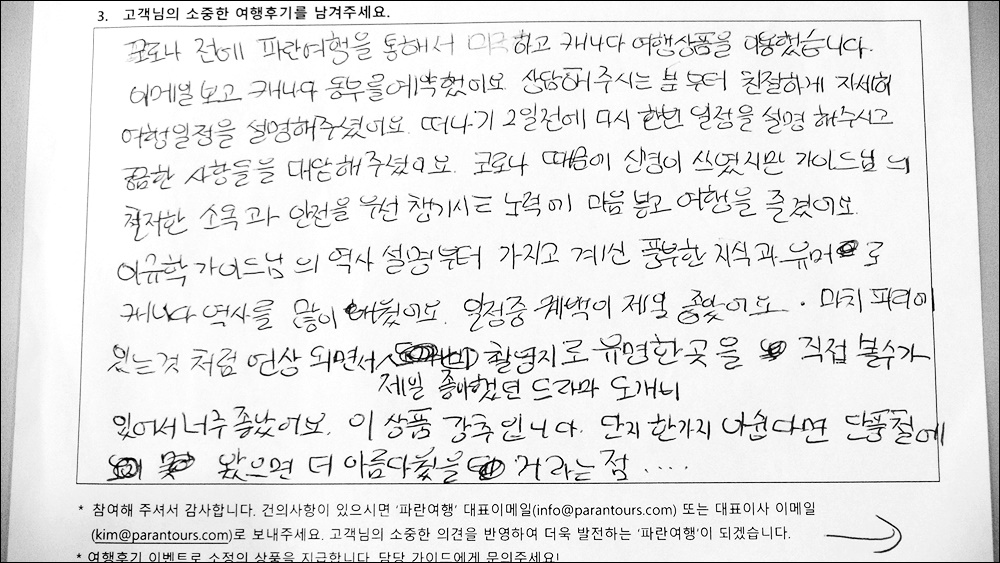 3. 고객님의 소중한 여행후기를 남겨주세요.
코로나 전에 파란여행을 통해서 미국하고 캐나다 여행상품을 이용했습니다.
이메일 보고 캐나다 동부를 예약했어요. 상담해주시는 분부터 친절하게 자세히
여행일정을 설명해주셨어요. 떠나기 2일전에 다시 한번 일정을 설명 해주시고
궁금한 사항들을 대답해주셨어요. 코로나 때문에 신경이 쓰였지만 가이드님의
철저한 소독과 안전을 우선 챙기시는 노력에 마음 놓고 여행을 즐겼어요.
이규학 가이드님의 역사 설명부터 가지고 계신 풍부한 지식과 유머로
캐나다 역사를 많이 배웠어요. 일정중 퀘백이 제일 좋았어요. 마치 파리에
있는것 처럼 연상 되면서 촬영지로 유명한곳을 직접 볼수가
제일 좋아했던 드라마 도깨비
있어서 너무 좋았어요. 이 상품 강추입니다. 단지 한가지 아쉽다면 단풍철에
왔으면 더 아름다웠을 거라는 점 ....
* 참여해 주셔서 감사합니다. 건의사항이 있으시면 '파란여행' 대표이메일(info@parantours.com) 또는 대표이사 이메일
(kim@parantours.com)로 보내주세요. 고객님의 소중한 의견을 반영하여 더욱 발전하는 '파란여행'이 되겠습니다.
* 여행후기 이벤트로 소정의 상품을 지급합니다. 담당 가이드에게 문의주세요!